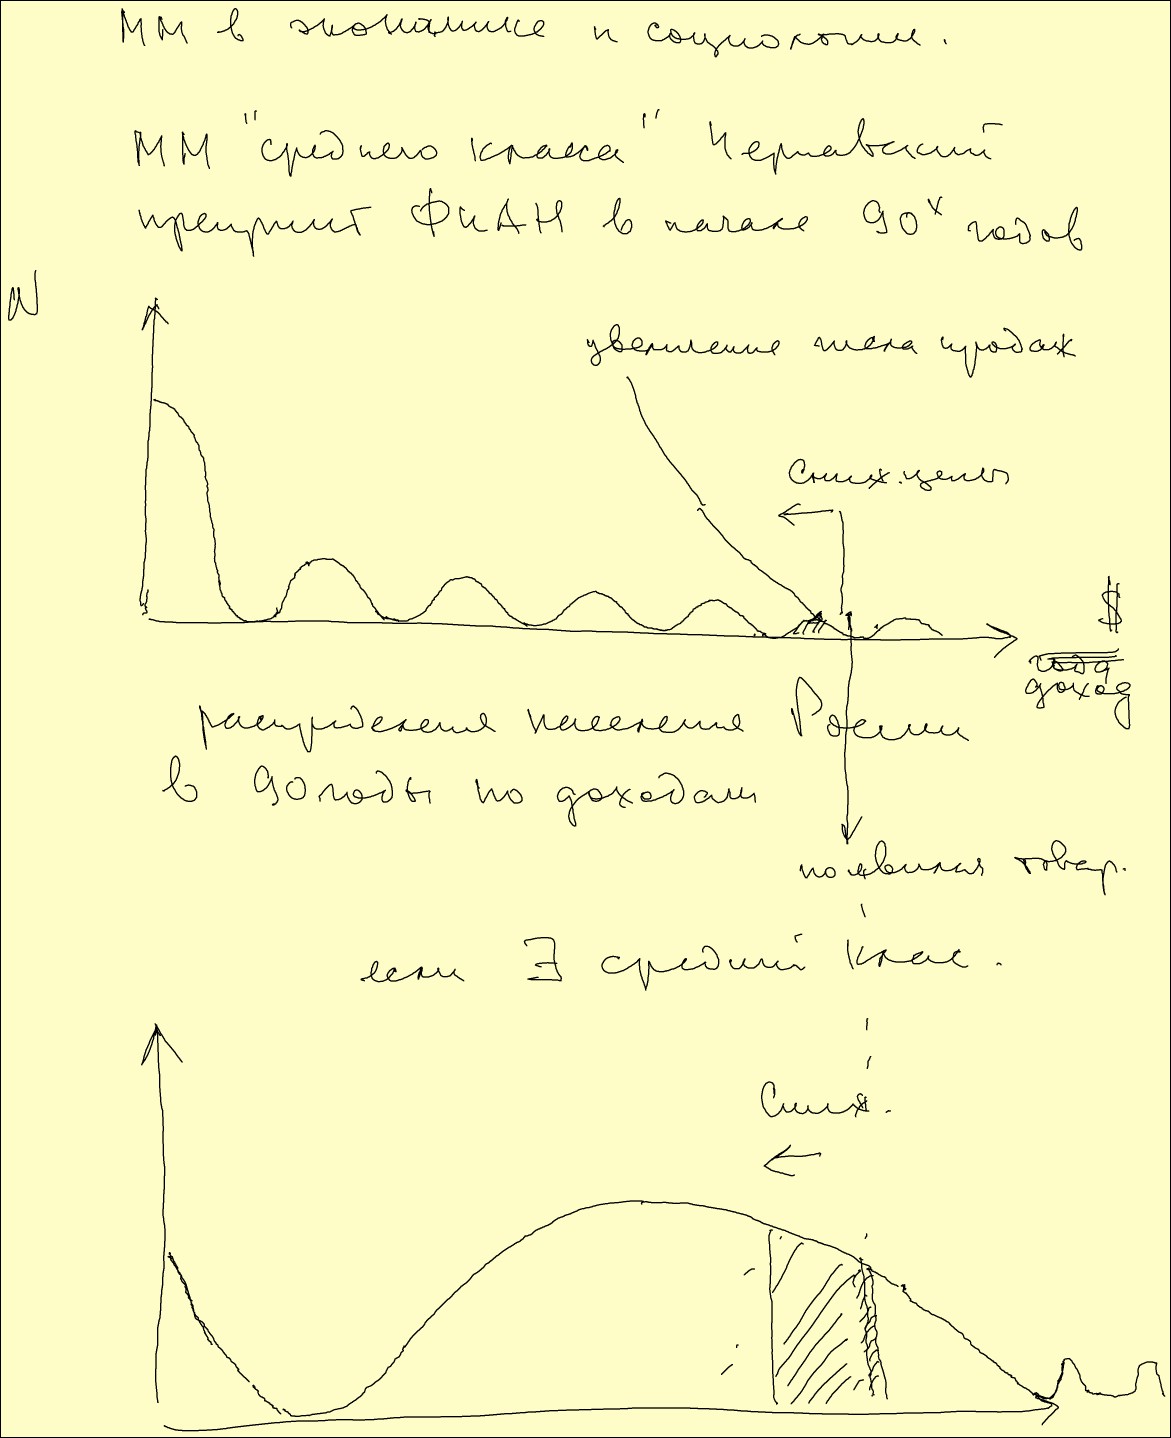 ММ в экономике и социологии.
ММ "среднего класса" Чернавский
препринт ФИАН в начале 90х годов
N
увеличение числа продаж
Сниж. цены
$
доход
распределения населения России
в 90 годы по доходам
появился товар.
если ∃ средний клас.
Сниж.